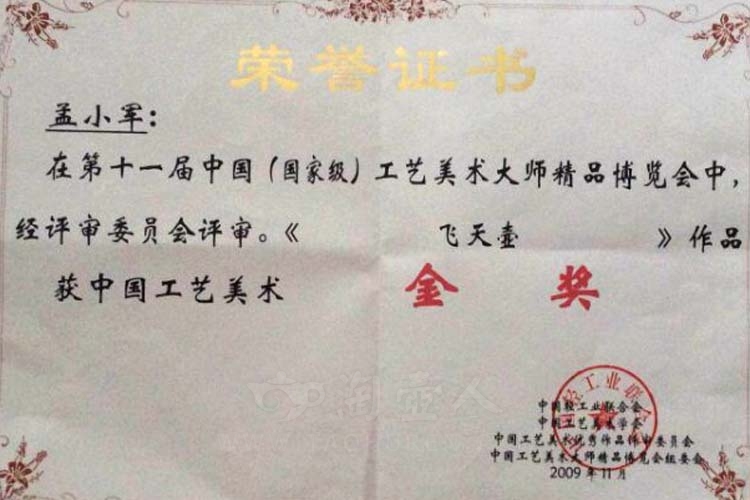 荣誉证书
孟小军：
在第十一届中国（国家级）工艺美术大师精品博览会中，
经评审委员会评审。《 飞天壶 》作品
获中国工艺美术 金 奖
壶人
中国轻工业联合会
中国工艺美术学会
中国工艺美术优秀作品评审委员会
中国工艺美术大师精品博览会组委会
2009年11月